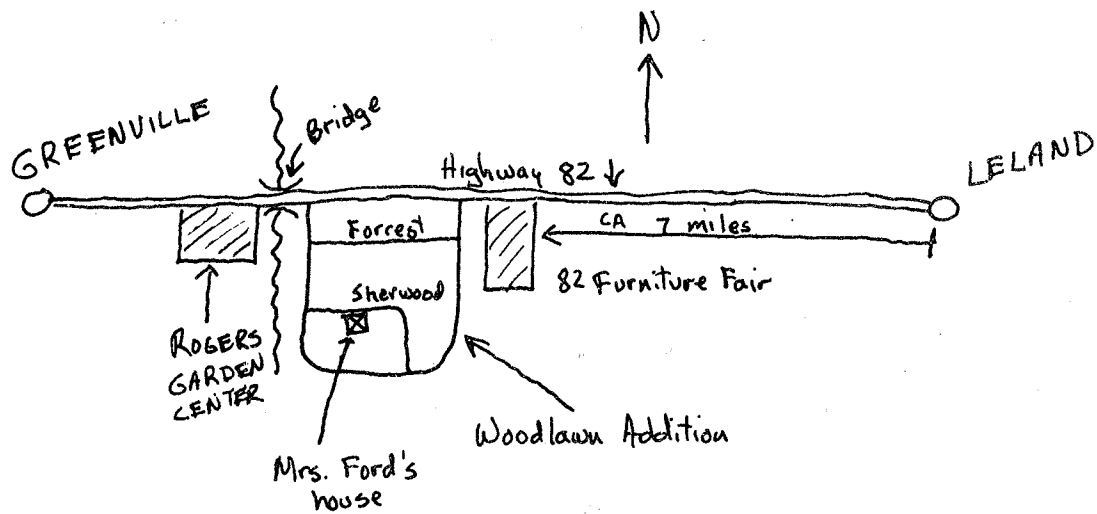 N
GREENVILLE
Bridge
Highway 82
LELAND
CA 7 miles
Forrest
82 Furniture Fair
Sherwood
ROGERS
GARDEN
CENTER
Woodlawn Addition
Mrs. Ford's
house